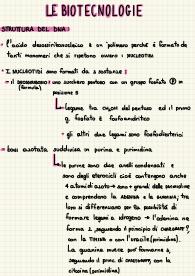 LE BIOTECNOLOGIE
STRUTTURA DEL DNA:
• l'acido desossiribonucleico è un polimero perché è formato da
tanti monomeri che si ripetono ovvero i NUCLEOTIDI
• I NUCLEOTIDI sono formati da 3 sostanze:
• il DESOSSIRIBOSIO: uno zucchero pentoso con un gruppo fosfato P in
(formula) posizione 5
legame tra del pentoso ed il primo
g. fosfato è fosfomonodiestere
• gli altri due legami sono fosfodiesterici
• basi azotate suddivise in purine e pirimidine
Le purine sono due anelli condensati e
sono degli eterocicli cioè contengono anche
4 atomi di azoto → sono + grandi delle pirimidine
e comprendono la ADENINA e la GUANINA, tra
loro si differenziano per la possibilità di
formare legami a idrogeno → l'adenina ne
forma 2, seguendo il principio di CHARGAFF,
con la TIMINA o con l'uracile (pirimidine).
La guanina invece può formarne 3,
seguendo il princ. di CHARGAFF, con la
citosina (pirimidina)